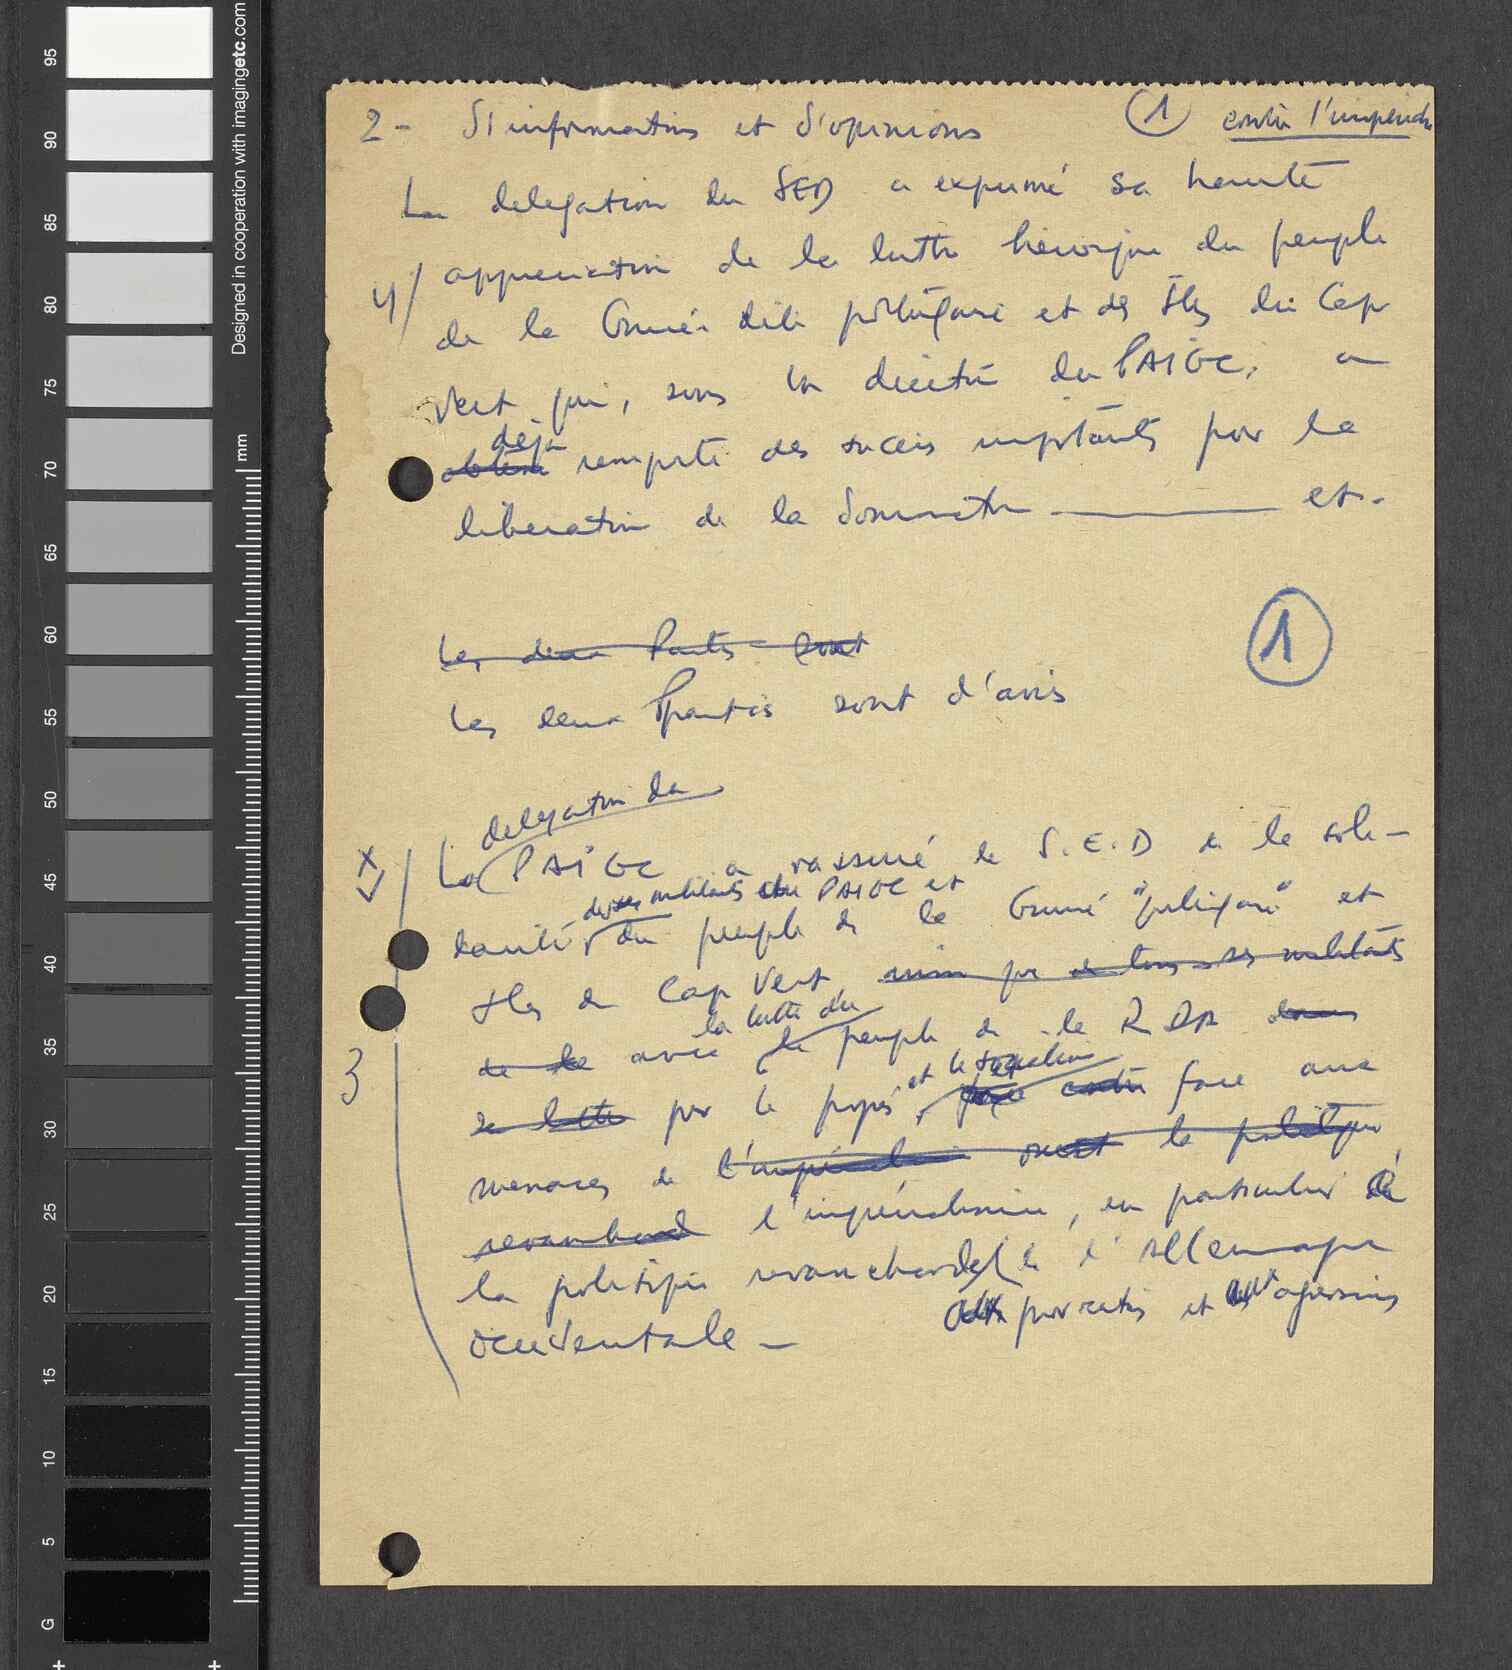 2 - d'informations et d'opinions ① contre l'impéria
La delegation du SED a exprimé sa haute
4/ appreciation de la lutte héroïque du peuple
de la Guinée dite portugaise et des Iles du Cap
Vert qui, sous la direction du PAIGC, a
déjà
obtenu remporté des succès importants pour la
libération de la domination ——— et.
Les deux Partis sont
①
Les deux Partis sont d'avis
delegation du
La PAIGC a rassuré le S.E.D de la soli-
des militants du PAIGC et
darité du peuple de la Guinée "portugaise" et
Iles du Cap Vert, de tous ses militants
la lutte du
de la avec le peuple de la RDA dans
3
et le socialisme
sa lutte pour le progrès, face contre face aux
menaces de l'impérialisme ouest la politique
revanchard l'impérialisme, en particulier de
la politique revancharde de l'Allemagne
occidentale - aux provocations et aux agressions
95
90
85
80
75
70
65
60
55
50
45
40
35
30
25
20
15
10
5
G
mm
Designed in cooperation with imagingetc.com